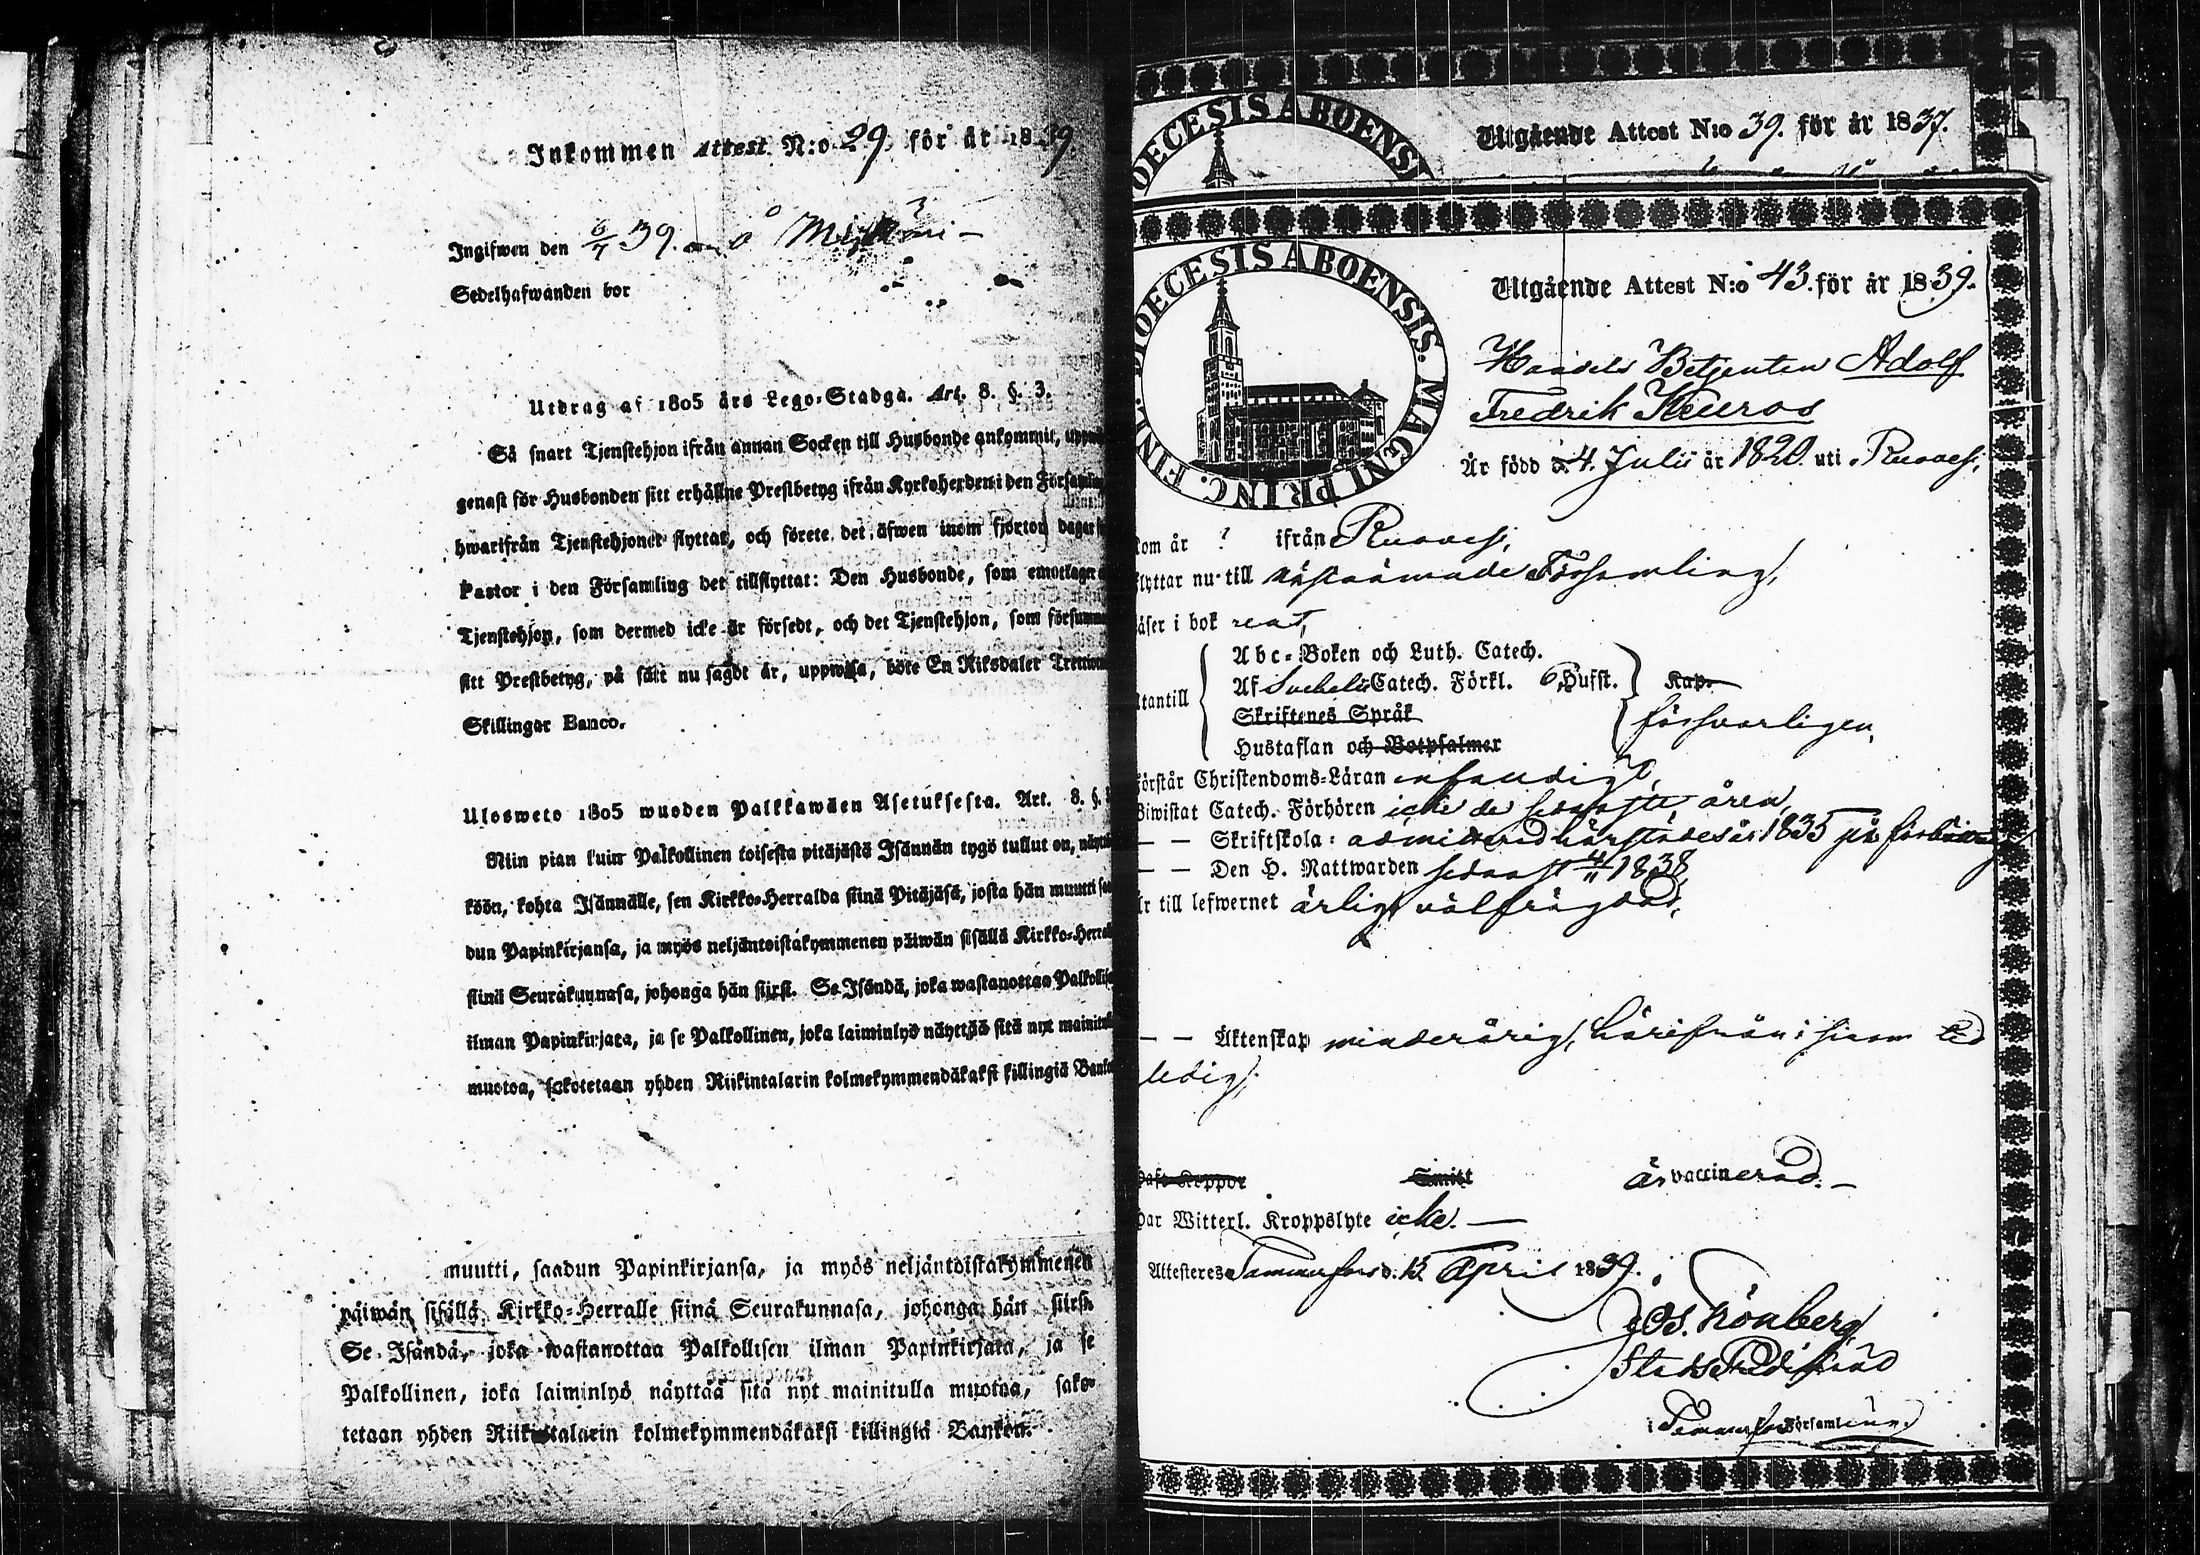 Inkommen Attest N:o 29 för år 1839
Ingifwen den 6/7 39.
Sedelhafwanden bor
Utdrag af 1805 års Lego-Stadga. Art. 8. §. 3.
Så snart Tjenstehjon ifrån annan Socken till Husbonde ankommit,
genast för Husbonden sitt erhållne Prestbetyg ifrån Kyrkoherden i den Församling
hwarifrån Tjenstehjonet flyttat, och förete det äfwen inom fjorton dagar
Pastor i den Församling det tillflyttat: Den Husbonde, som emottager
Tjenstehjon, som dermed icke är försedt, och det Tjenstehjon, som försumma
sitt Prestbetyg, på sätt nu sagdt är, uppwisa, böte En Riksdaler
Skillingar Banco.
Ulosweto 1805 wuoden Palkkawäen Asetuksesta. Art. 8. §. 3
Niin pian kuin Palkollinen toisesta pitäjästä Isännän tygö tullut on, näyttä
köön, kohta Isännälle, sen Kirkko-Herralda siinä Pitäjäsä, josta hän muutti saa
dun Papinkirjansa, ja myös neljäntoistakymmenen päiwän sisällä Kirkko-Herral
siinä Seurakunnasa, johonga hän siirst. Se Isändä, joka wastanottaa Palkollis
ilman Papinkirjata, ja se Palkollinen, joka laiminlyö näyttää sitä nyt mainitulla
muotoa, sakotetaan yhden Riikintalarin kolmekymmendäkaksi killingiä Banko
muutti, saadun Papinkirjansa, ja myös neljäntoistakymmenen
päiwän sisällä Kirkko-Herralle siinä Seurakunnasa, johonga hän siirst.
Se Isändä, joka wastanottaa Palkollisen ilman Papinkirjata, ja se
Palkollinen, joka laiminlyö näyttää sitä nyt mainitulla muotoa, sako-
tetaan yhden Riikintalarin kolmekymmendäkaksi killingiä Bankon.
DIOECESIS ABOENSIS
Utgående Attest N:o 39. för år 1837.
DIOECESIS ABOENSIS. MAGNI PRINC. FINL.
Utgående Attest N:o 43. för år 1839.
Handels Betjenten Adolf
Fredrik Keuros
Är född d. 4. Julii år 1820. uti Ruovesi,
kom år ? ifrån Ruovesi,
flyttar nu till nästnämnde Församling,
läser i bok rent,
utantill
Abc-Boken och Luth. Catech.
Af Svebelii Catech. Förkl. 6 Hufst. Kap.
Skriftenes Språk
försvarligen,
Hustaflan och Botpsalmer
förstår Christendoms-Läran enfaldigt,
Biwistat Catech. Förhören icke de sednaste åren,
— — Skriftskola: admitterad härstädes år 1835
— — Den H. Nattwarden sednast 4/11 1838,
är till lefwernet ärlig, välfrägdad,
— — Äktenskap minderårig, härifrån
ledig.
haft Koppor Smitt är vaccinerad. —
har Witterl. Kroppslyte icke. —
Attesteres Tammerfors d. 13 April 1839.
Jos. Grönberg
Stadspredikand
i Tammerfors Församling.